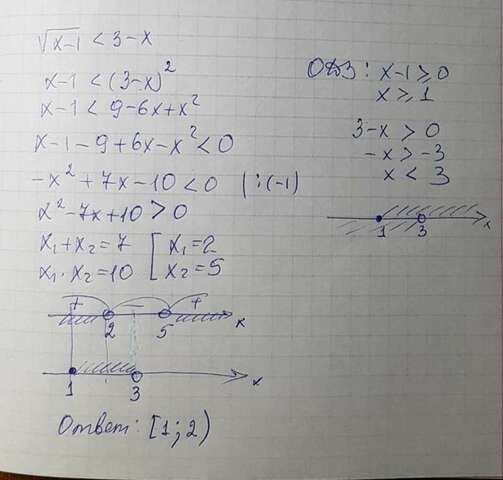 √x-1 < 3-x
x-1 < (3-x)²
x-1 < 9-6x+x²
x-1-9+6x-x² < 0
-x²+7x-10 < 0 | :(-1)
x²-7x+10 > 0
x₁+x₂=7 [ x₁=2
x₁·x₂=10 x₂=5
+ - +
2 5 x
1 3 x
Ответ: [1; 2)
ОДЗ: x-1 ≥ 0
x ≥ 1
3-x > 0
-x > -3
x < 3
1 3 x